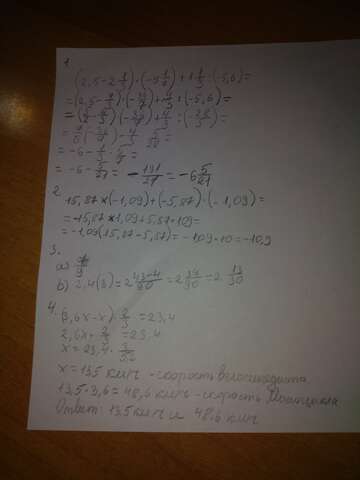 1
(2,5-2 1/3)·(-5 1/7)+1 1/3:(-5,6)=
=(2,5-7/3)·(-36/7)+4/3:(-5,6)=
=(5/2-7/3)·(-36/7)+4/3:(-28/5)=
=-6-5/21=-131/21=-6 5/21
2.
15,87×(-1,09)+(-5,87)·(-1,09)=
=-15,87×1,09+5,87·1,09=
=-1,09(15,87-5,87)=-1,09·10=-10,9
3.
a)
b) 2,4(3)=2 43-4/90=2 39/90=2 13/30
4.
(3,6x-x)·2/3=23,4
2,6x·2/3=23,4
x=23,4·
x=13,5 км/ч -скорость велосипедиста
13,5·3,6=48,6 км/ч -скорость Мотоцикла
Ответ: 13,5 км/ч и 48,6 км/ч